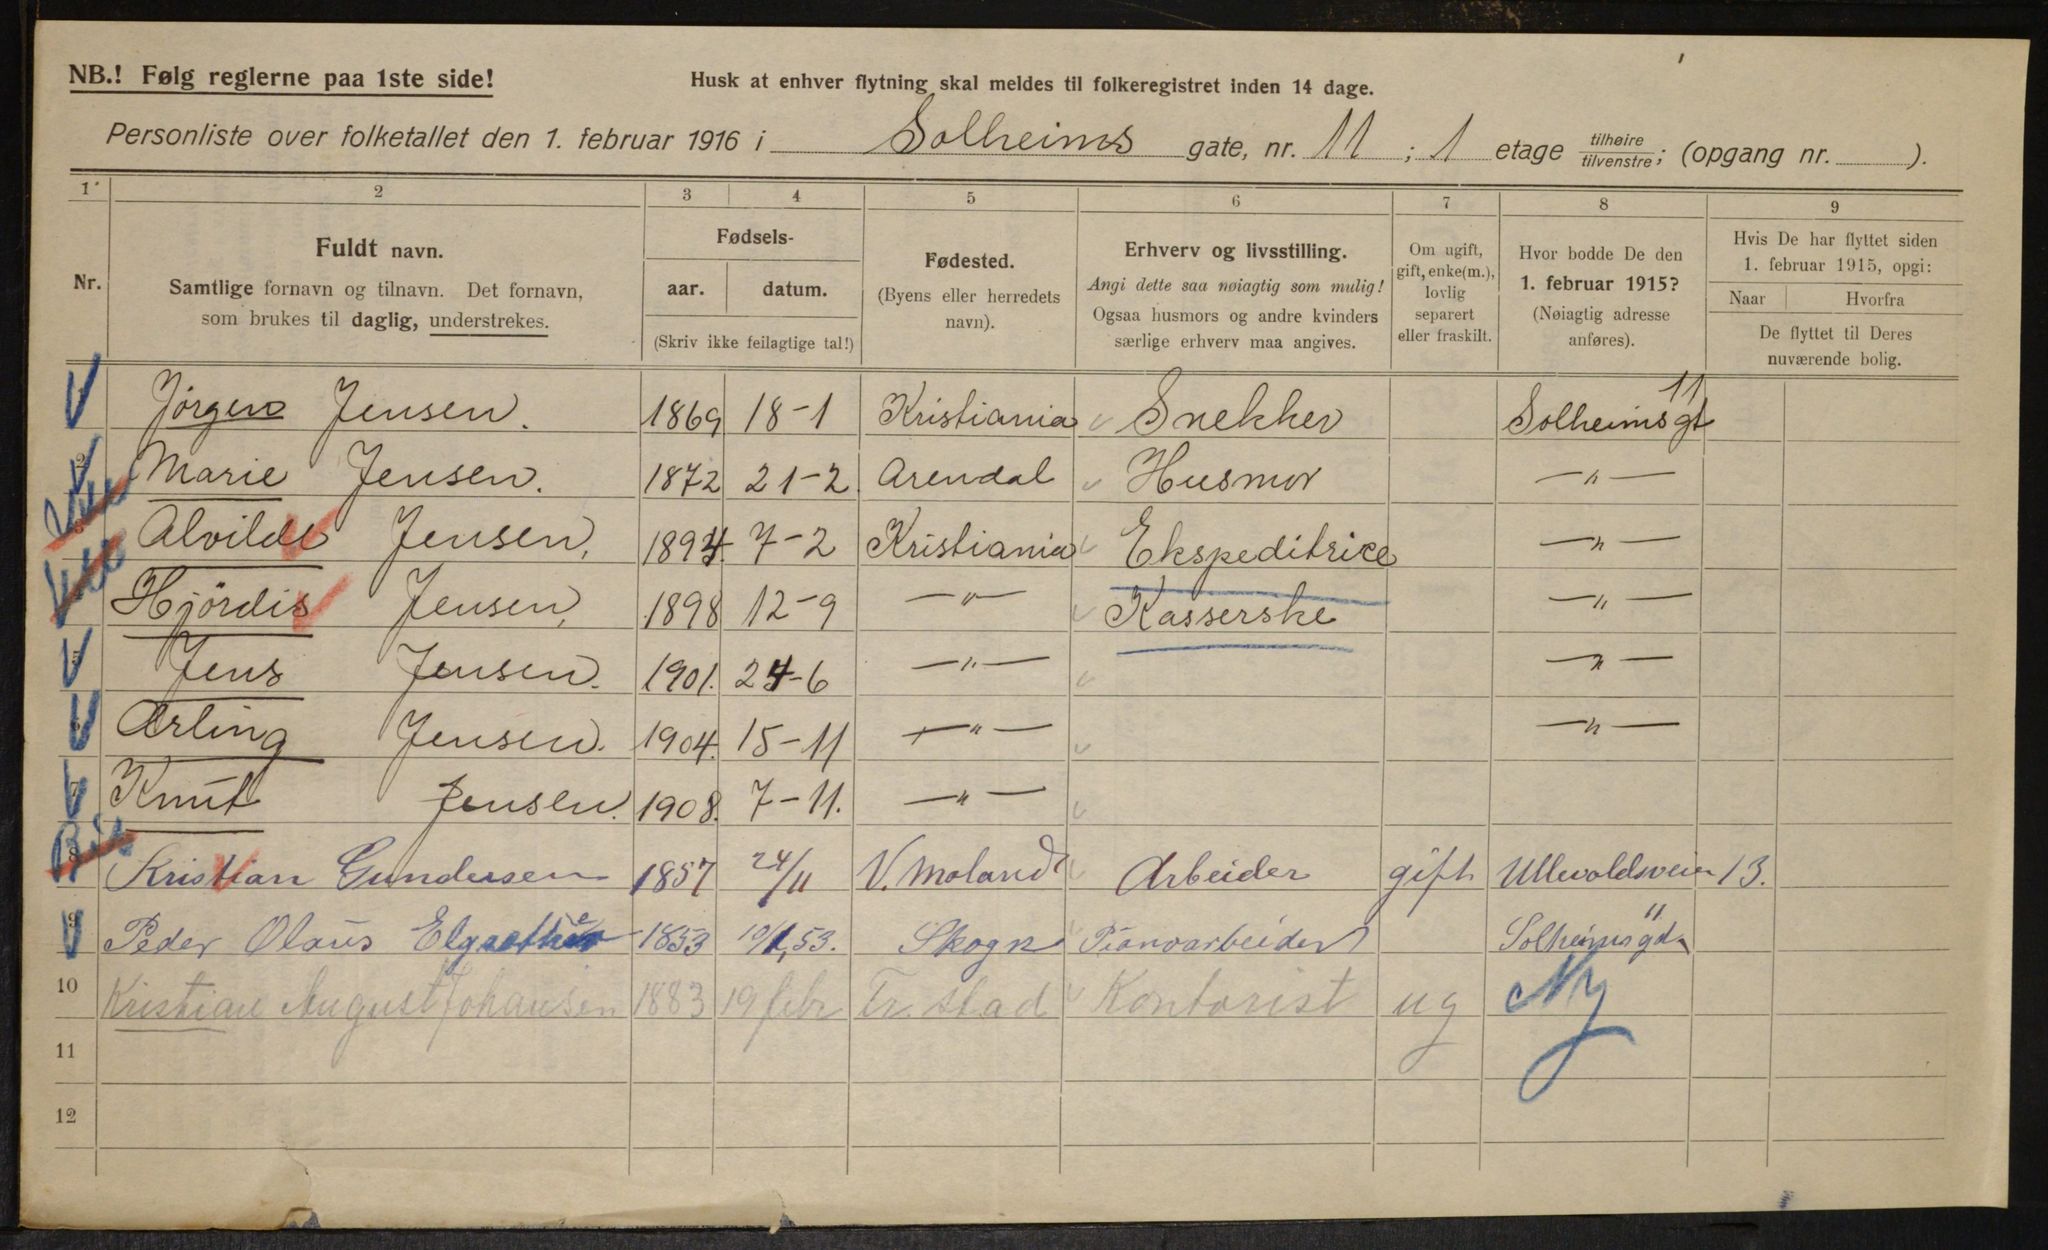 NB.! Følg reglerne paa 1ste side!
Husk at enhver flytning skal meldes til folkeregistret inden 14 dage.
Personliste over folketallet den 1. februar 1916 i Solheims gate, nr. 11 ; 1 etage tilhøire tilvenstre; (opgang nr. ).
1 2 3 4 5 6 7 8 9
Nr.
Fuldt navn.
Samtlige fornavn og tilnavn. Det fornavn,
som brukes til daglig, understrekes.
Fødsels-
aar. datum.
(Skriv ikke feilagtige tal!)
Fødested.
(Byens eller herredets
navn).
Erhverv og livsstilling.
Angi dette saa nøiagtig som mulig!
Ogsaa husmors og andre kvinders
særlige erhverv maa angives.
Om ugift,
gift, enke(m.),
lovlig
separert
eller fraskilt.
Hvor bodde De den
1. februar 1915?
(Nøiagtig adresse
anføres).
Hvis De har flyttet siden
1. februar 1915, opgi:
Naar Hvorfra
De flyttet til Deres
nuværende bolig.
Jörgen Jensen. 1869 18-1 Kristiania Snekker Solheimsgt 11
2 Marie Jensen. 1872 21-2. Arendal Husmor —"—
3 Alvilde Jensen, 1894. 7-2 Kristiania Ekspeditrice —"—
Hjördis Jensen, 1898 12-9 —"— Kasserske —"—
5 Jens Jensen. 1901. 24-6 —"— —"—
6 Arling Jensen. 1904. 15-11 —"— —"—
7 Knut Jensen. 1908. 7-11. —"—
8 Kristian Gundersen 1857 24/11 V. Moland Arbeider gift Ullevoldsveien 13.
9 Peder Olaus 1853 53. Skogn Pianoarbeider Solheimsgd 11
10 Kristian August Johansen 1883 19 febr Fr. stad Kontorist ug Ny
11
12